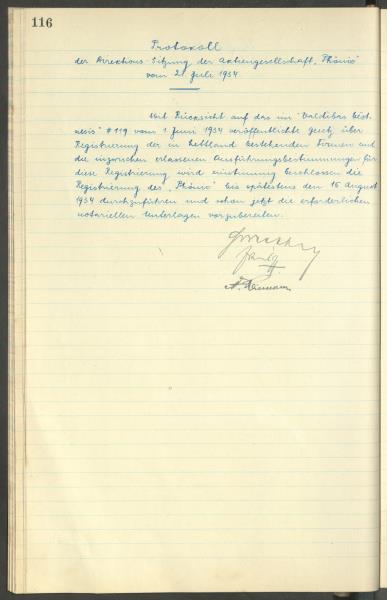 116
Protokoll
der Direktions-Sitzung der Aktiengesellschaft "Phönix"
vom 2. Juli 1934.
Mit Rücksicht auf das im "Valdibas Vest-
nesis" #119 vom 1. Juni 1934 veröffentlichte Gesetz über
Registrierung der in Lettland bestehenden Firmen und
die inzwischen erlassenen Ausführungsbestimmungen für
diese Registrierung wird einstimmig beschlossen die
Registrierung des "Phönix" bis spätestens den 15 August
1934 durchzuführen und schon jetzt die erforderlichen
notariellen Unterlagen vorzubereiten.